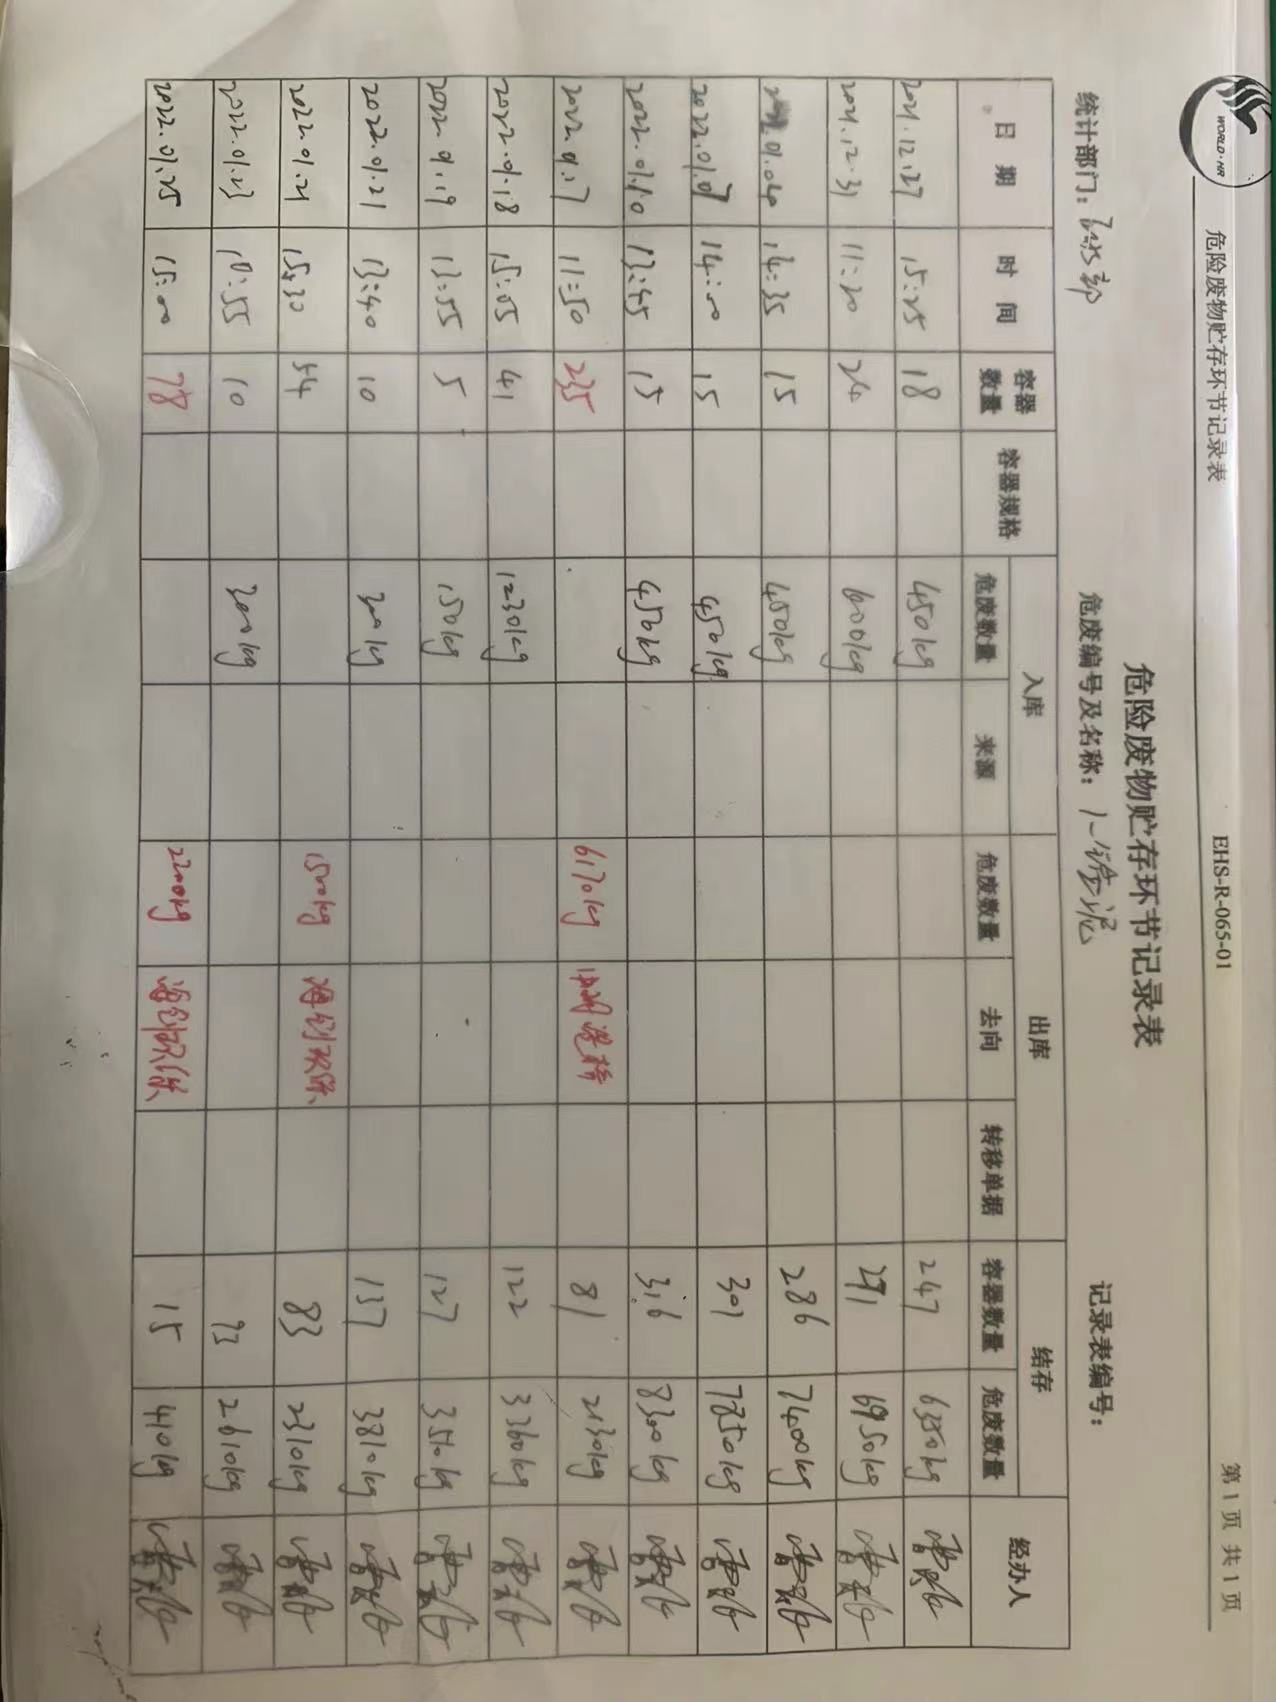 WORLD·HR
危险废物贮存环节记录表 EHS-R-065-01 第 1 页 共 1 页
危险废物贮存环节记录表
统计部门： 危废编号及名称： 记录表编号：
日期 时间 容器数量 容器规格 入库 出库 结存 经办人
危废数量 来源 危废数量 去向 转移单据 容器数量 危废数量
2021.12.27 15:25 18 450kg 247 6350kg
2021.12.31 11:20 24 600kg 271 6950kg
01.04 14:35 15 450kg 286 7400kg
2022.01.07 14:00 15 450kg 301 7850kg
2022.01.10 13:45 15 450kg 316 8300kg
2022.01.17 11:50 235 6170kg 81 2130kg
2022.01.18 15:05 41 1230kg 122 3360kg
2022.01.19 13:55 5 150kg 127 3510kg
2022.01.21 13:40 10 300kg 137 3810kg
2022.01.21 15:30 54 1500kg 83 2310kg
2022.01.23 10:55 10 300kg 93 2610kg
2022.01.25 15:00 78 2200kg 15 410kg